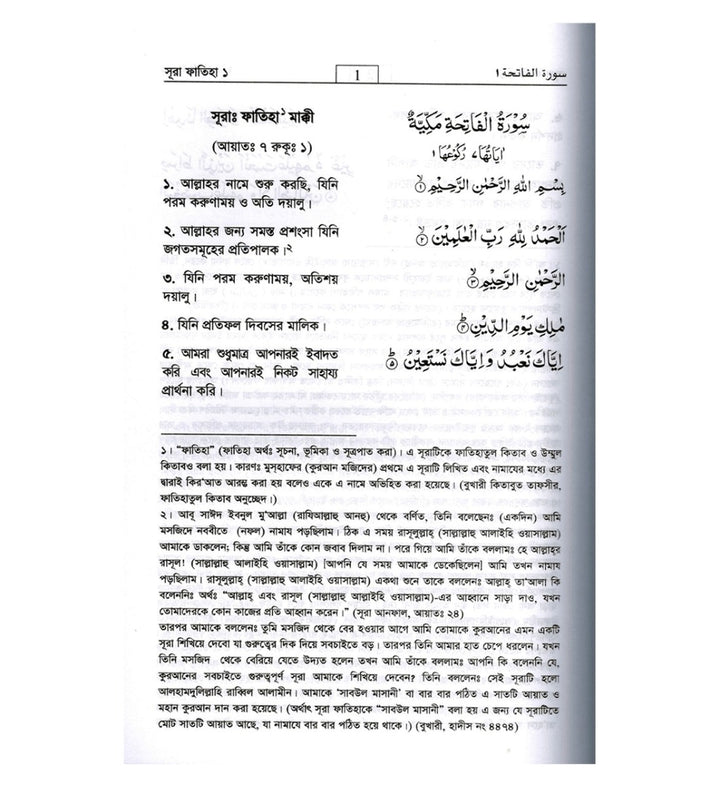 সূরা ফাতিহা ১
1
سورة الفاتحة ١
সূরাঃ ফাতিহা¹ মাক্কী
(আয়াতঃ ৭ রুকূঃ ১)
১. আল্লাহর নামে শুরু করছি, যিনি
পরম করুণাময় ও অতি দয়ালু।
২. আল্লাহর জন্য সমস্ত প্রশংসা যিনি
জগতসমূহের প্রতিপালক।²
৩. যিনি পরম করুণাময়, অতিশয়
দয়ালু।
৪. যিনি প্রতিফল দিবসের মালিক।
৫. আমরা শুধুমাত্র আপনারই ইবাদত
করি এবং আপনারই নিকট সাহায্য
প্রার্থনা করি।
سُوْرَةُ الْفَاتِحَةِ مَكِّيَّةٌ
اٰيَاتُهَا ٧ رُكُوْعُهَا ١
بِسْمِ اللّٰهِ الرَّحْمٰنِ الرَّحِيْمِ ①
اَلْحَمْدُ لِلّٰهِ رَبِّ الْعٰلَمِيْنَ ②
الرَّحْمٰنِ الرَّحِيْمِ ③
مٰلِكِ يَوْمِ الدِّيْنِ ④
اِيَّاكَ نَعْبُدُ وَاِيَّاكَ نَسْتَعِيْنُ ⑤
১। "ফাতিহা" (ফাতিহা অর্থঃ সূচনা, ভূমিকা ও সূত্রপাত করা)। এ সূরাটিকে ফাতিহাতুল কিতাব ও উম্মুল
কিতাবও বলা হয়। কারণঃ মুসহাফের (কুরআন মজিদের) প্রথমে এ সূরাটি লিখিত এবং নামাযের মধ্যে এর
দ্বারাই কির'আত আরম্ভ করা হয় বলেও একে এ নামে অভিহিত করা হয়েছে। (বুখারী কিতাবুত তাফসীর,
ফাতিহাতুল কিতাব অনুচ্ছেদ।)
২। আবূ সাঈদ ইবনুল মু'আল্লা (রাযিআল্লাহু আনহু) থেকে বর্ণিত, তিনি বলেছেনঃ (একদিন) আমি
মসজিদে নববীতে (নফল) নামায পড়ছিলাম। ঠিক এ সময় রাসূলুল্লাহ্ (সাল্লাল্লাহু আলাইহি ওয়াসাল্লাম)
আমাকে ডাকলেন; কিন্তু আমি তাঁকে কোন জবাব দিলাম না। পরে গিয়ে আমি তাঁকে বললামঃ হে আল্লাহর
রাসূল! (সাল্লাল্লাহু আলাইহি ওয়াসাল্লাম) [আপনি যে সময় আমাকে ডেকেছিলেন] আমি তখন নামায
পড়ছিলাম। রাসূলুল্লাহ্ (সাল্লাল্লাহু আলাইহি ওয়াসাল্লাম) একথা শুনে তাকে বললেনঃ আল্লাহ্ তা'আলা কি
বলেননিঃ অর্থঃ "আল্লাহ্ এবং রাসূল (সাল্লাল্লাহু আল্লাইহি ওয়াসাল্লাম)-এর আহ্বানে সাড়া দাও, যখন
তোমাদেরকে কোন কাজের প্রতি আহ্বান করেন।" (সূরা আনফাল, আয়াতঃ ২৪)
তারপর আমাকে বললেনঃ তুমি মসজিদ থেকে বের হওয়ার আগে আমি তোমাকে কুরআনের এমন একটি
সূরা শিখিয়ে দেবো যা গুরুত্বের দিক দিয়ে সবচাইতে বড়। তারপর তিনি আমার হাত চেপে ধরলেন। যখন
তিনি মসজিদ থেকে বেরিয়ে যেতে উদ্যত হলেন তখন আমি তাঁকে বললামঃ আপনি কি বলেননি যে,
কুরআনের সবচাইতে গুরুত্বপূর্ণ সূরা আমাকে শিখিয়ে দিবেন? তিনি বললেনঃ সেই সূরাটি হলো
আলহামদুলিল্লাহি রাব্বিল আলামীন। আমাকে 'সাবউল মাসানী' বা বার বার পঠিত এ সাতটি আয়াত ও
মহান কুরআন দান করা হয়েছে। (অর্থাৎ সূরা ফাতিহাকে "সাবউল মাসানী" বলা হয় এ জন্য যে সূরাটিতে
মোট সাতটি আয়াত আছে, যা নামাযে বার বার পঠিত হয়ে থাকে।) (বুখারী, হাদীস নং ৪৪৭৪)